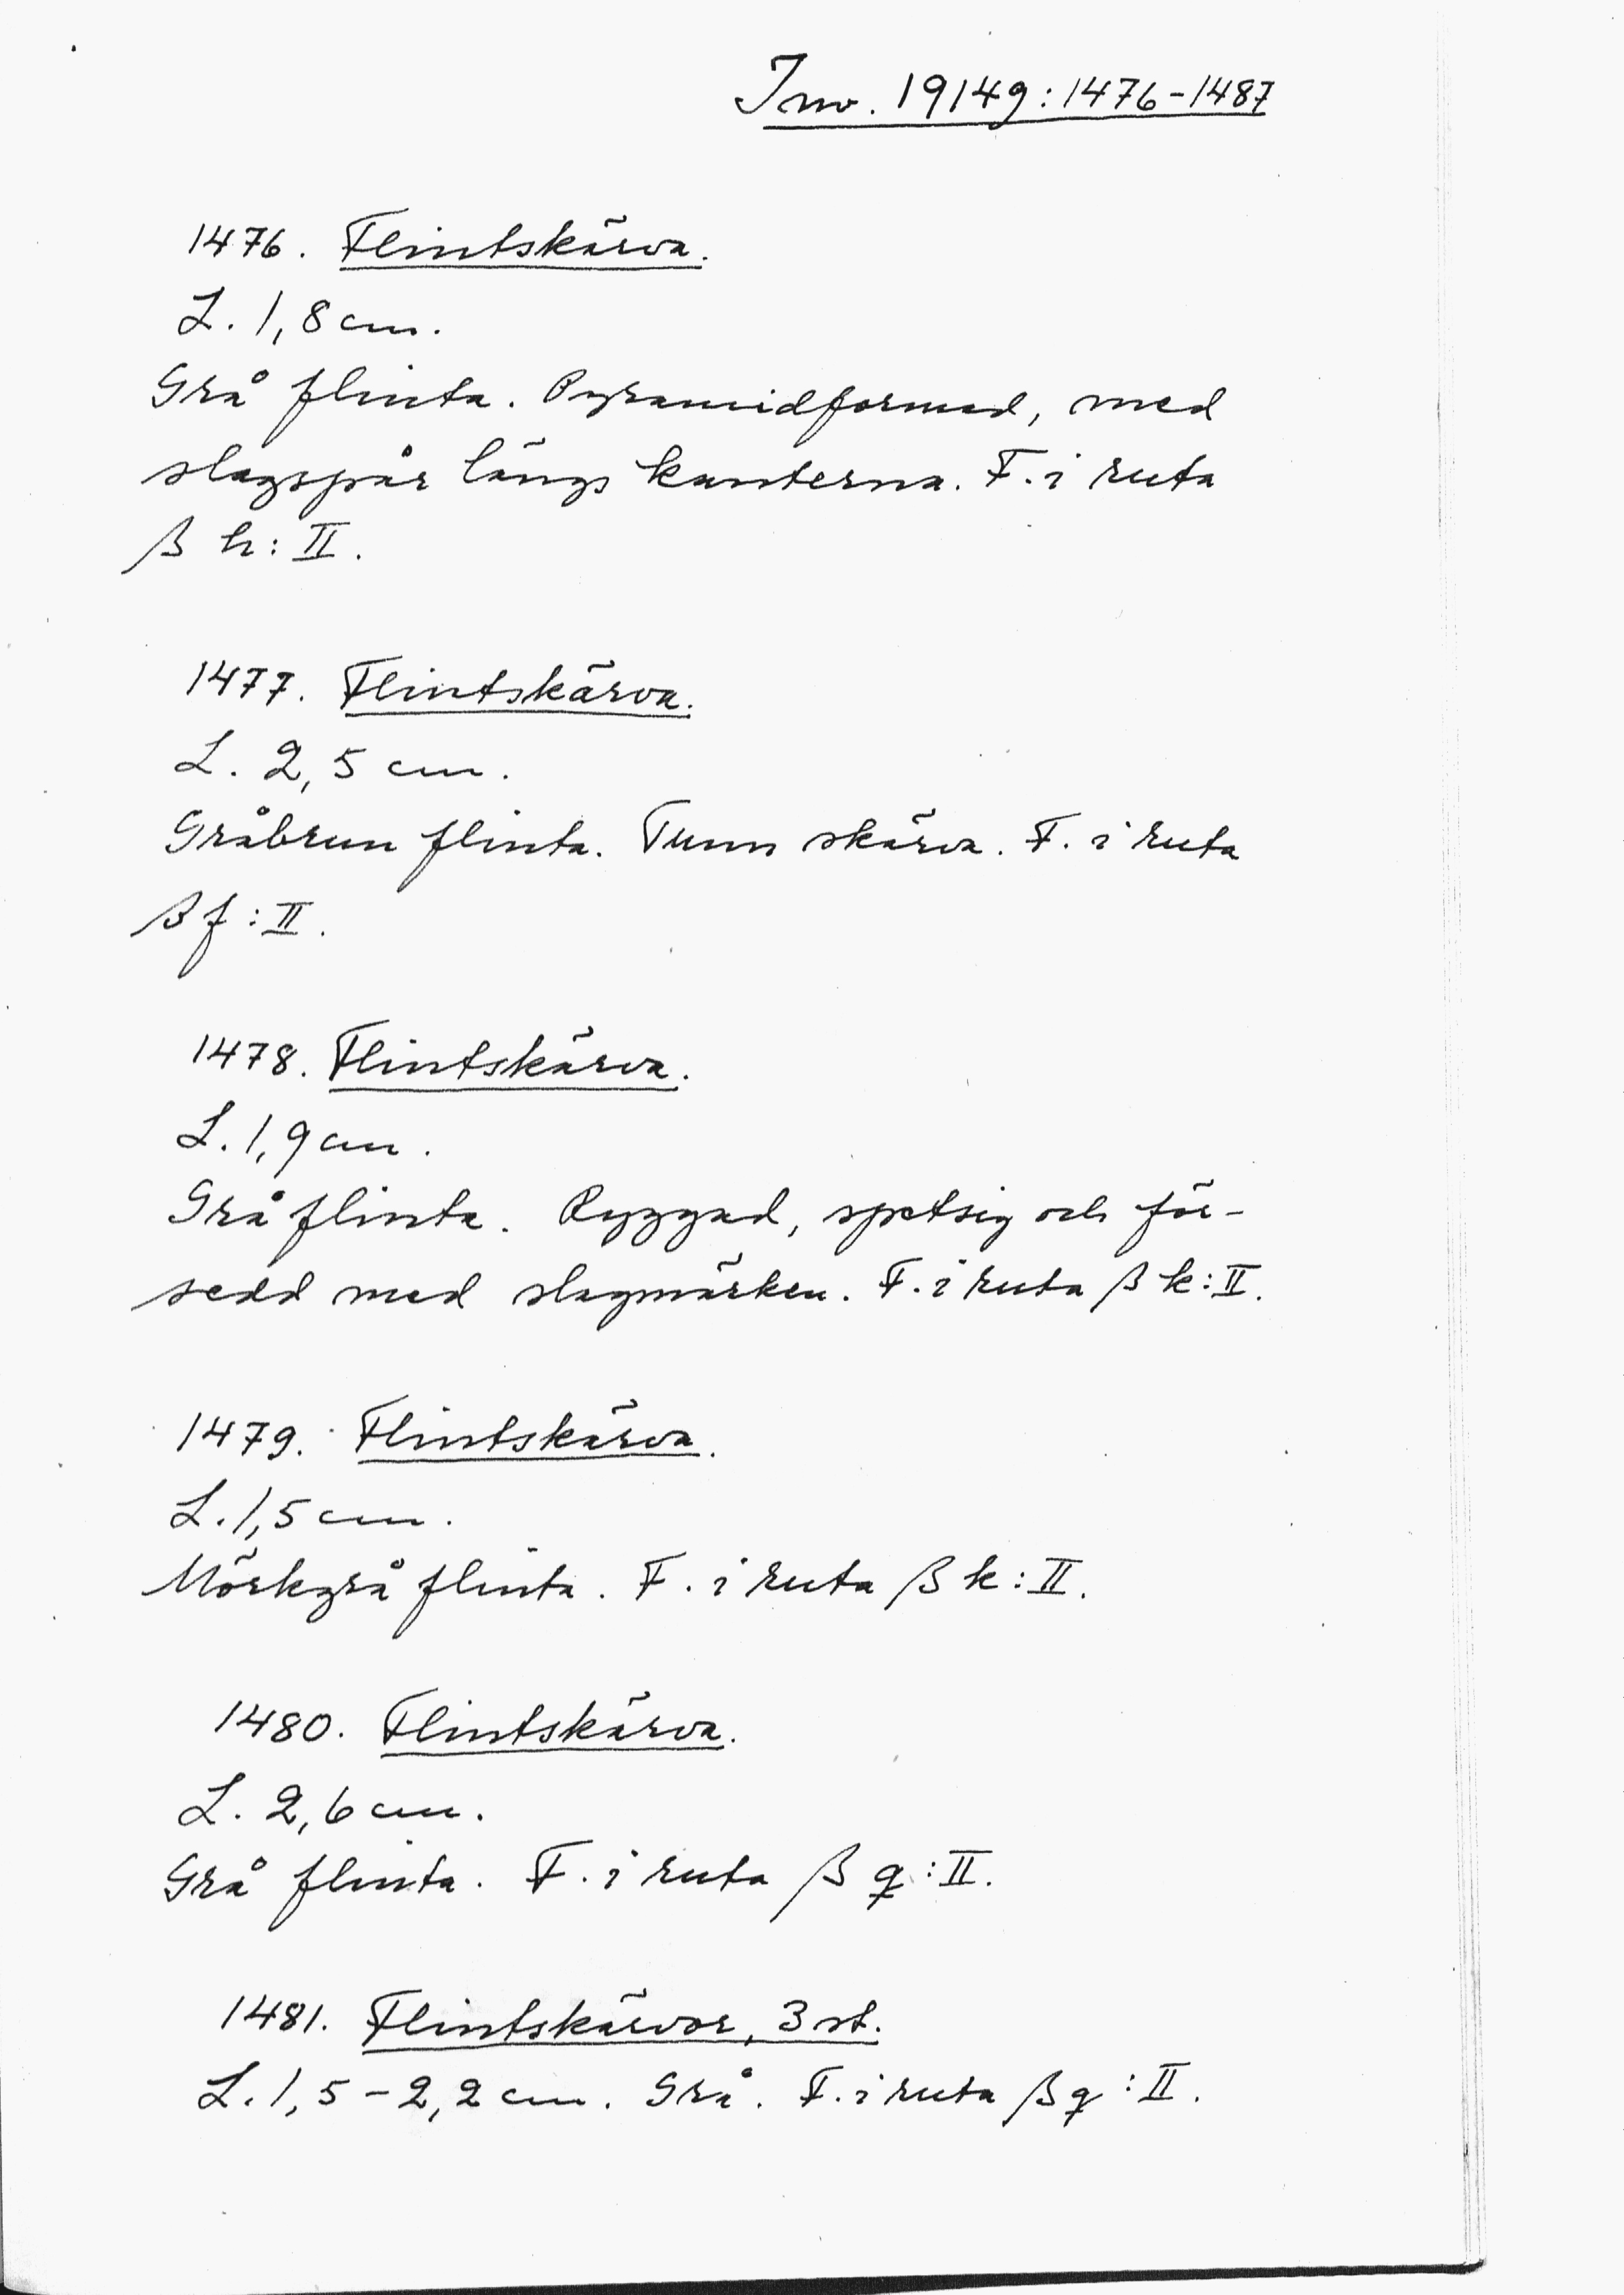 Inv. 19149:1476-1487
1476. Flintskärva.
L. 1,8 cm.
Grå flinta. Pyramidformad, med
slagspår längs kanterna. F. i ruta
β h: II.
1477. Flintskärva.
L. 2,5 cm.
Gråbrun flinta. Tunn skärva. F. i ruta
β f: II.
1478. Flintskärva.
L. 1,9 cm.
Grå flinta. Ryggad, spetsig och för-
sedd med slagmärken. F. i ruta β k: II.
1479. Flintskärva.
L. 1,5 cm.
Mörkgrå flinta. F. i ruta β k: II.
1480. Flintskärva.
L. 2,6 cm.
Grå flinta. F. i ruta β q: II.
1481. Flintskärvor, 3 st.
L. 1,5-2,2 cm. Grå. F. i ruta β q: II.